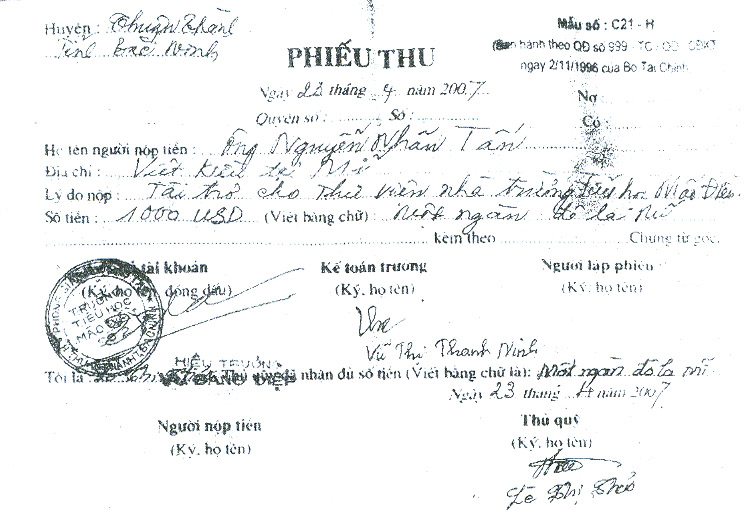 Huyện : Thuận Thành
Tỉnh Bắc Ninh
Mẫu số : C21 - H
(Ban hành theo QĐ số 999 - TC / QĐ / CĐKT
ngày 2/11/1996 của Bộ Tài Chính
PHIẾU THU
Ngày 23 tháng 4 năm 2007
Nợ :
Quyển số : Số :
Có :
Họ tên người nộp tiền : Ông Nguyễn Nhân Tấn
Địa chỉ : Việt Kiều tại Mĩ
Lý do nộp : Tài trợ cho thư viện nhà trường Tiểu học Mão Điền
Số tiền : 1000 USD (Viết bằng chữ) : Một ngàn đô la Mĩ
kèm theo Chứng từ gốc.
tài khoản
(Ký, họ đóng dấu)
Kế toán trưởng
(Ký, họ tên)
Người lập phiếu
(Ký, họ tên)
TRƯỜNG
TIỂU HỌC
MÃO
Vũ Thị Thanh Ninh
HIỆU TRƯỞNG
Tôi là Thủ quỹ đã nhận đủ số tiền (Viết bằng chữ tại): Một ngàn đô la mĩ
Ngày 23 tháng 4 năm 2007
Người nộp tiền
(Ký, họ tên)
Thủ quỹ
(Ký, họ tên)
Lê Thị